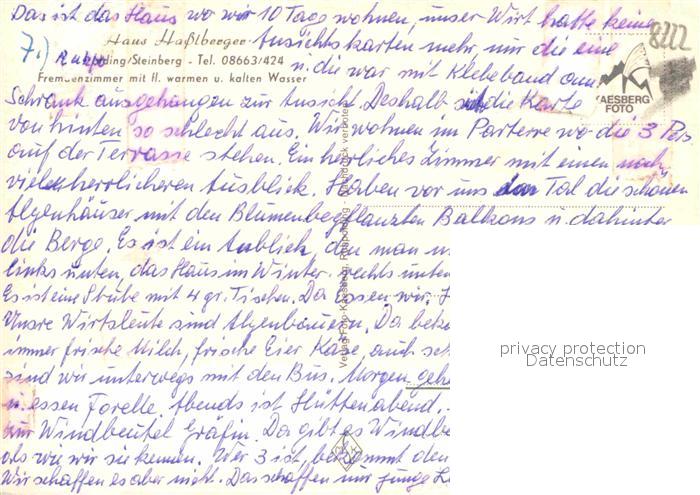 Das ist das Haus wo wir 10 Tage wohnen, unser Wirt hatte keine
7.) Haus Haßlberger Ansichtskarten mehr, nur die eine 8222
Ruhpolding/Steinberg - Tel. 08663/424 u. die war mit Klebeband am
Fremdenzimmer mit fl. warmen u. kalten Wasser
KAESBERG FOTO
Schrank ausgehangen zur Ansicht. Deshalb sieht die Karte
von hinten so schlecht aus. Wir wohnen im Parterre wo die 3 Pers.
auf der Terrasse stehen. Ein herrliches Zimmer mit einen noch
viel herrlicheren Ausblick. Haben vor uns das Tal die schönen
Alpenhäuser mit den Blumenbepflanzten Balkons u. dahinter
die Berge. Es ist ein Anblick den man
links unten, das Haus im Winter. rechts unten
Es ist eine Stube mit 4 gr. Tischen. Da Essen wir.
Unsre Wirtsleute sind Alpenbauern. Da
immer frische Milch, frische Eier Käse, auch
sind wir unterwegs mit den Bus. Morgen
u. essen Forelle. Abends ist Hüttenabend.
zur Windbeutel Gräfin. Da gibt es
als wie wir sie kennen. Wer 3 ist, bekommt den
Wir schaffen es aber nicht. Das schaffen nur junge
Verlag Foto Kaesberg, Ruhpolding - Nachdruck verboten!
privacy protection
Datenschutz